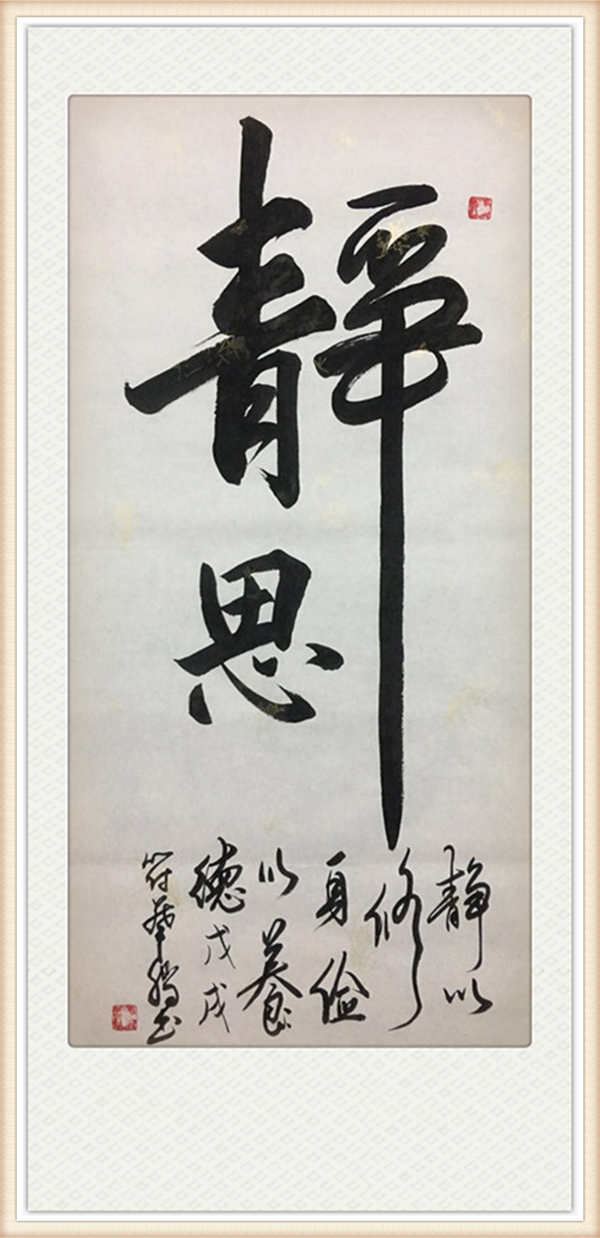 靜思
靜以
修
身儉
以養
德戊戌
符華书